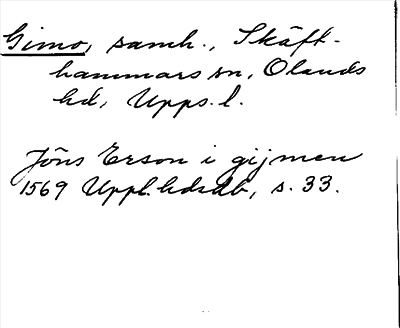 Gimo, samh., Skäft-
hammars sn, Olands
hd, Upps. l.
Jöns Erson i gijmen
1569 Uppl.hdsdb, s. 33.